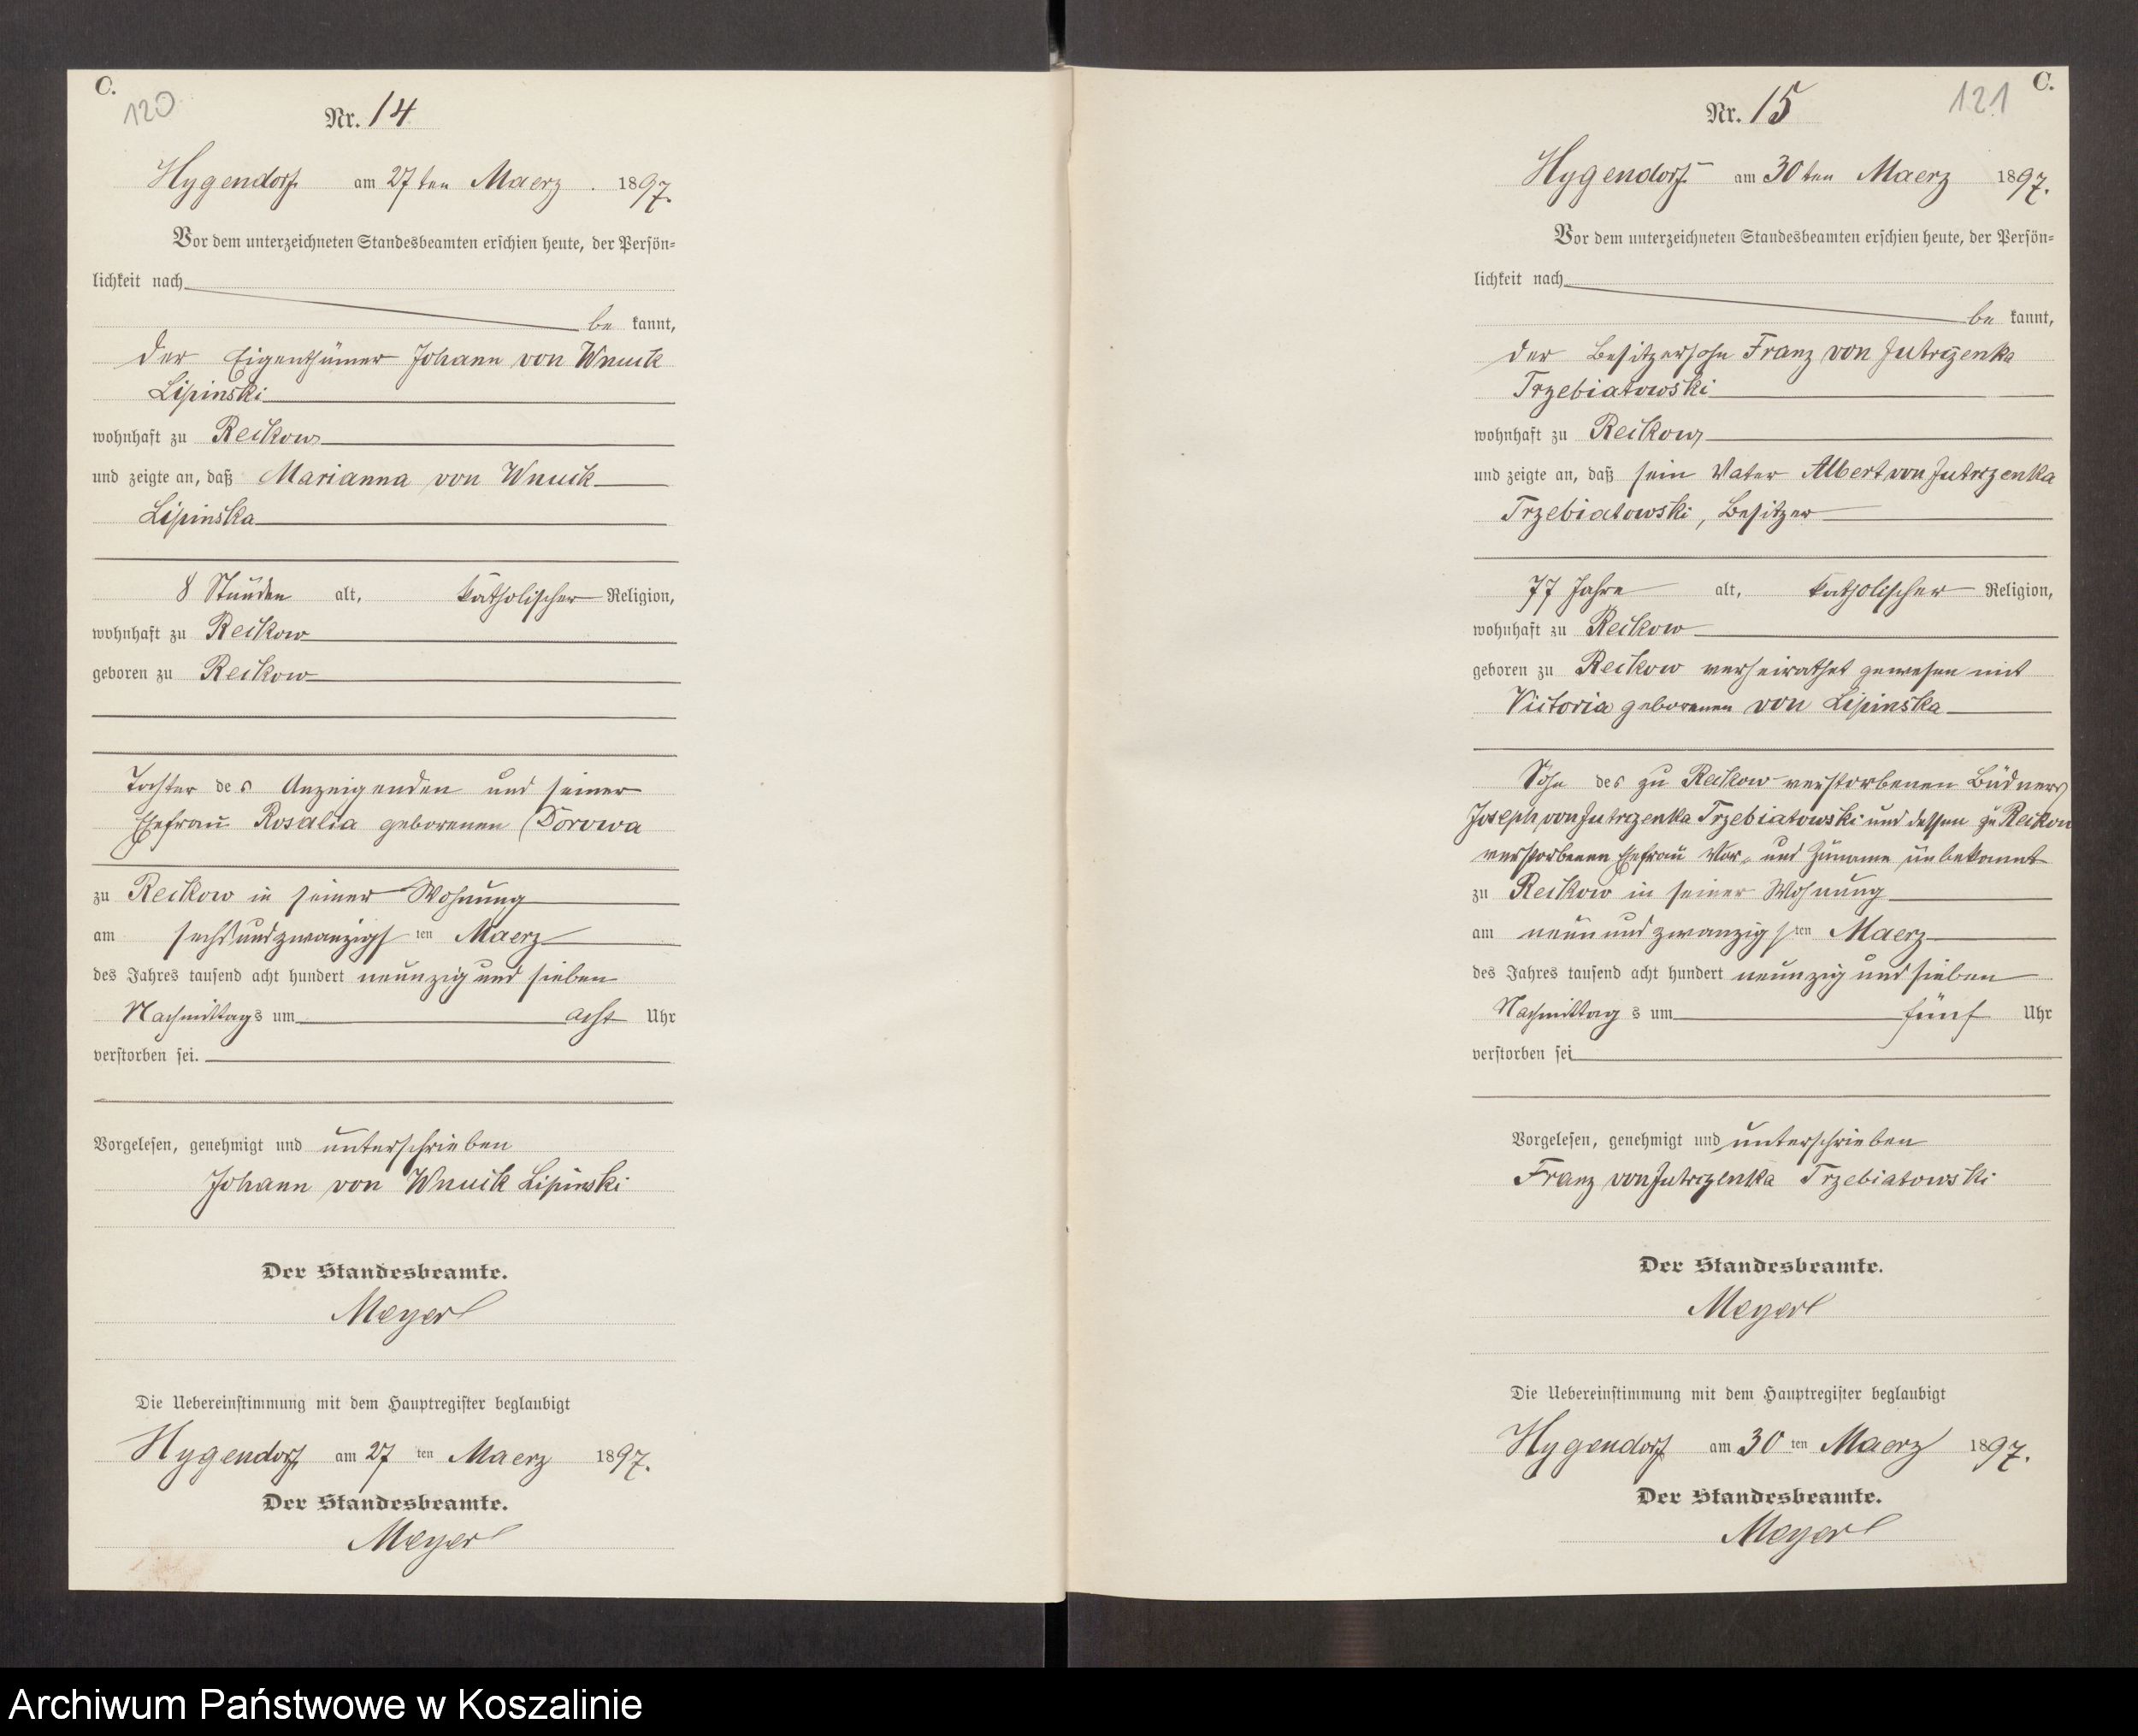 C.
120
Nr. 14
Hygendorf am 27ten Maerz 1897.
Vor dem unterzeichneten Standesbeamten erschien heute, der Persön=
lichkeit nach
be kannt,
der Eigenthümer Johann von Wnuck
Lipinski
wohnhaft zu Reckow
und zeigte an, daß Marianna von Wnuck
Lipinska
8 Stunden alt, katholischer Religion,
wohnhaft zu Reckow
geboren zu Reckow
Tochter des Anzeigenden und seiner
Ehefrau Rosalia geborenen Dorowa
zu Reckow in seiner Wohnung
am sechsundzwanzigsten Maerz
des Jahres tausend acht hundert neunzig und sieben
Nachmittags um acht Uhr
verstorben sei.
Vorgelesen, genehmigt und unterschrieben
Johann von Wnuck Lipinski
Der Standesbeamte.
Meyer
Die Uebereinstimmung mit dem Hauptregister beglaubigt
Hygendorf am 27 ten Maerz 1897.
Der Standesbeamte.
Meyer
C.
121
Nr. 15
Hygendorf am 30ten Maerz 1897.
Vor dem unterzeichneten Standesbeamten erschien heute, der Persön=
lichkeit nach
be kannt,
der Besitzersohn Franz von Jutrzenka
Trzebiatowski
wohnhaft zu Reckow
und zeigte an, daß sein Vater Albert von Jutrzenka
Trzebiatowski, Besitzer
77 Jahre alt, katholischer Religion,
wohnhaft zu Reckow
geboren zu Reckow verheirathet gewesen mit
Victoria geborenen von Lipinska
Sohn des zu Reckow verstorbenen Büdners
Joseph von Jutrzenka Trzebiatowski und dessen zu Reckow
verstorbenen Ehefrau Vor- und Zuname unbekannt
zu Reckow in seiner Wohnung
am neunundzwanzigsten Maerz
des Jahres tausend acht hundert neunzig und sieben
Nachmittags um fünf Uhr
verstorben sei
Vorgelesen, genehmigt und unterschrieben
Franz von Jutrzenka Trzebiatowski
Der Standesbeamte.
Meyer
Die Uebereinstimmung mit dem Hauptregister beglaubigt
Hygendorf am 30 ten Maerz 1897.
Der Standesbeamte.
Meyer
Archiwum Państwowe w Koszalinie